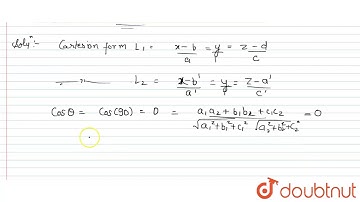 Solⁿ:- Cartesian form L₁ = x-b/a = y/1 = z-d/c
L₂ = x-b'/a' = y/1 = z-a'/c'
Cosθ = Cos(90) = 0 = a₁a₂+b₁b₂+c₁c₂/√a₁²+b₁²+c₁² √a₂²+b₂²+c₂² = 0
doubtnut